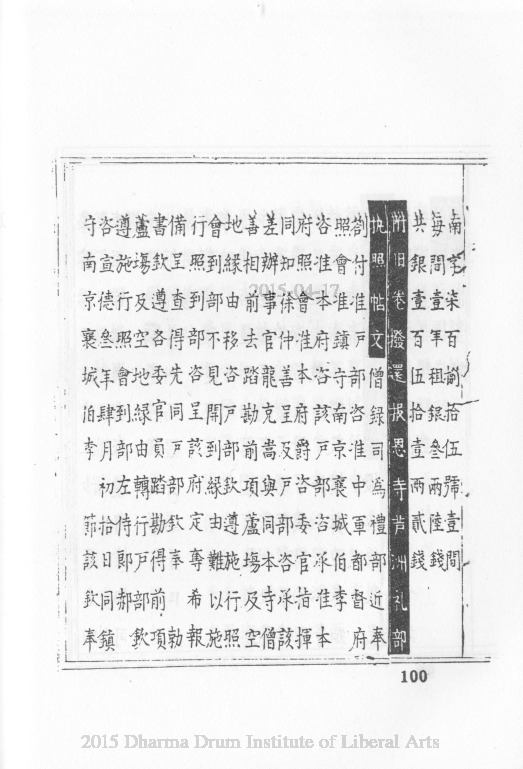 南字柒百拾伍號壹間
每間壹年租銀叁兩陸錢
共銀壹百伍拾壹兩貳錢
附旧卷撥還报恩寺芦洲礼部
执照帖文僧録司為禮部近奉
劄付准户部咨准中軍都督府
照會准鎮守南京襄城伯李
咨准本府咨該户部咨承准本
府照會准本府爵咨委官指揮
同知徐仲善呈及户部咨承該
差辦事官龍克嵩與同本寺僧
善相前去踏勘前項蘆塲及空
地緣由移咨户部欽遵施行照
會到部不見開到緣由難以施
行照到部咨呈該府定奪希報
備呈查得先同户部欽奉勅
書欽遵各委官員踏勘得前項
蘆塲及空地緣由轉行户部欽
遵施行照會到部左侍郎郝
咨宣德叁年肆月初拾日同鎮
守南京襄城伯李節該欽奉
100
2015-04-17
2015 Dharma Drum Institute of Liberal Arts